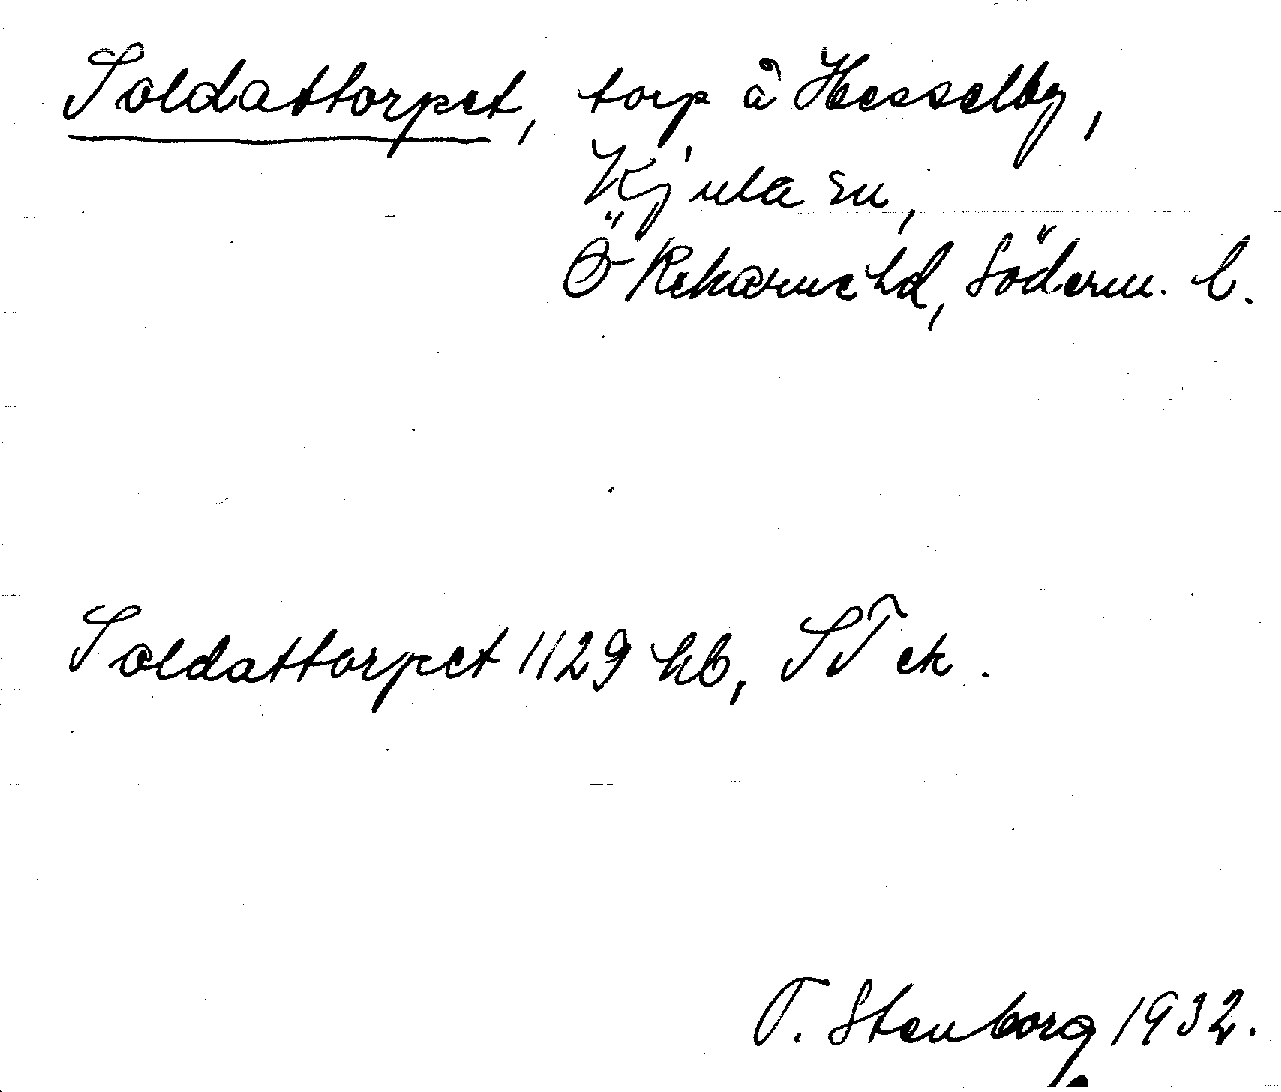 Soldattorpet, torp å Hesselby,
Kjula sn,
Ö Rekarne hd, Söderm. l.
Soldattorpet 1129 hb, ST ek.
T. Stenborg 1932.